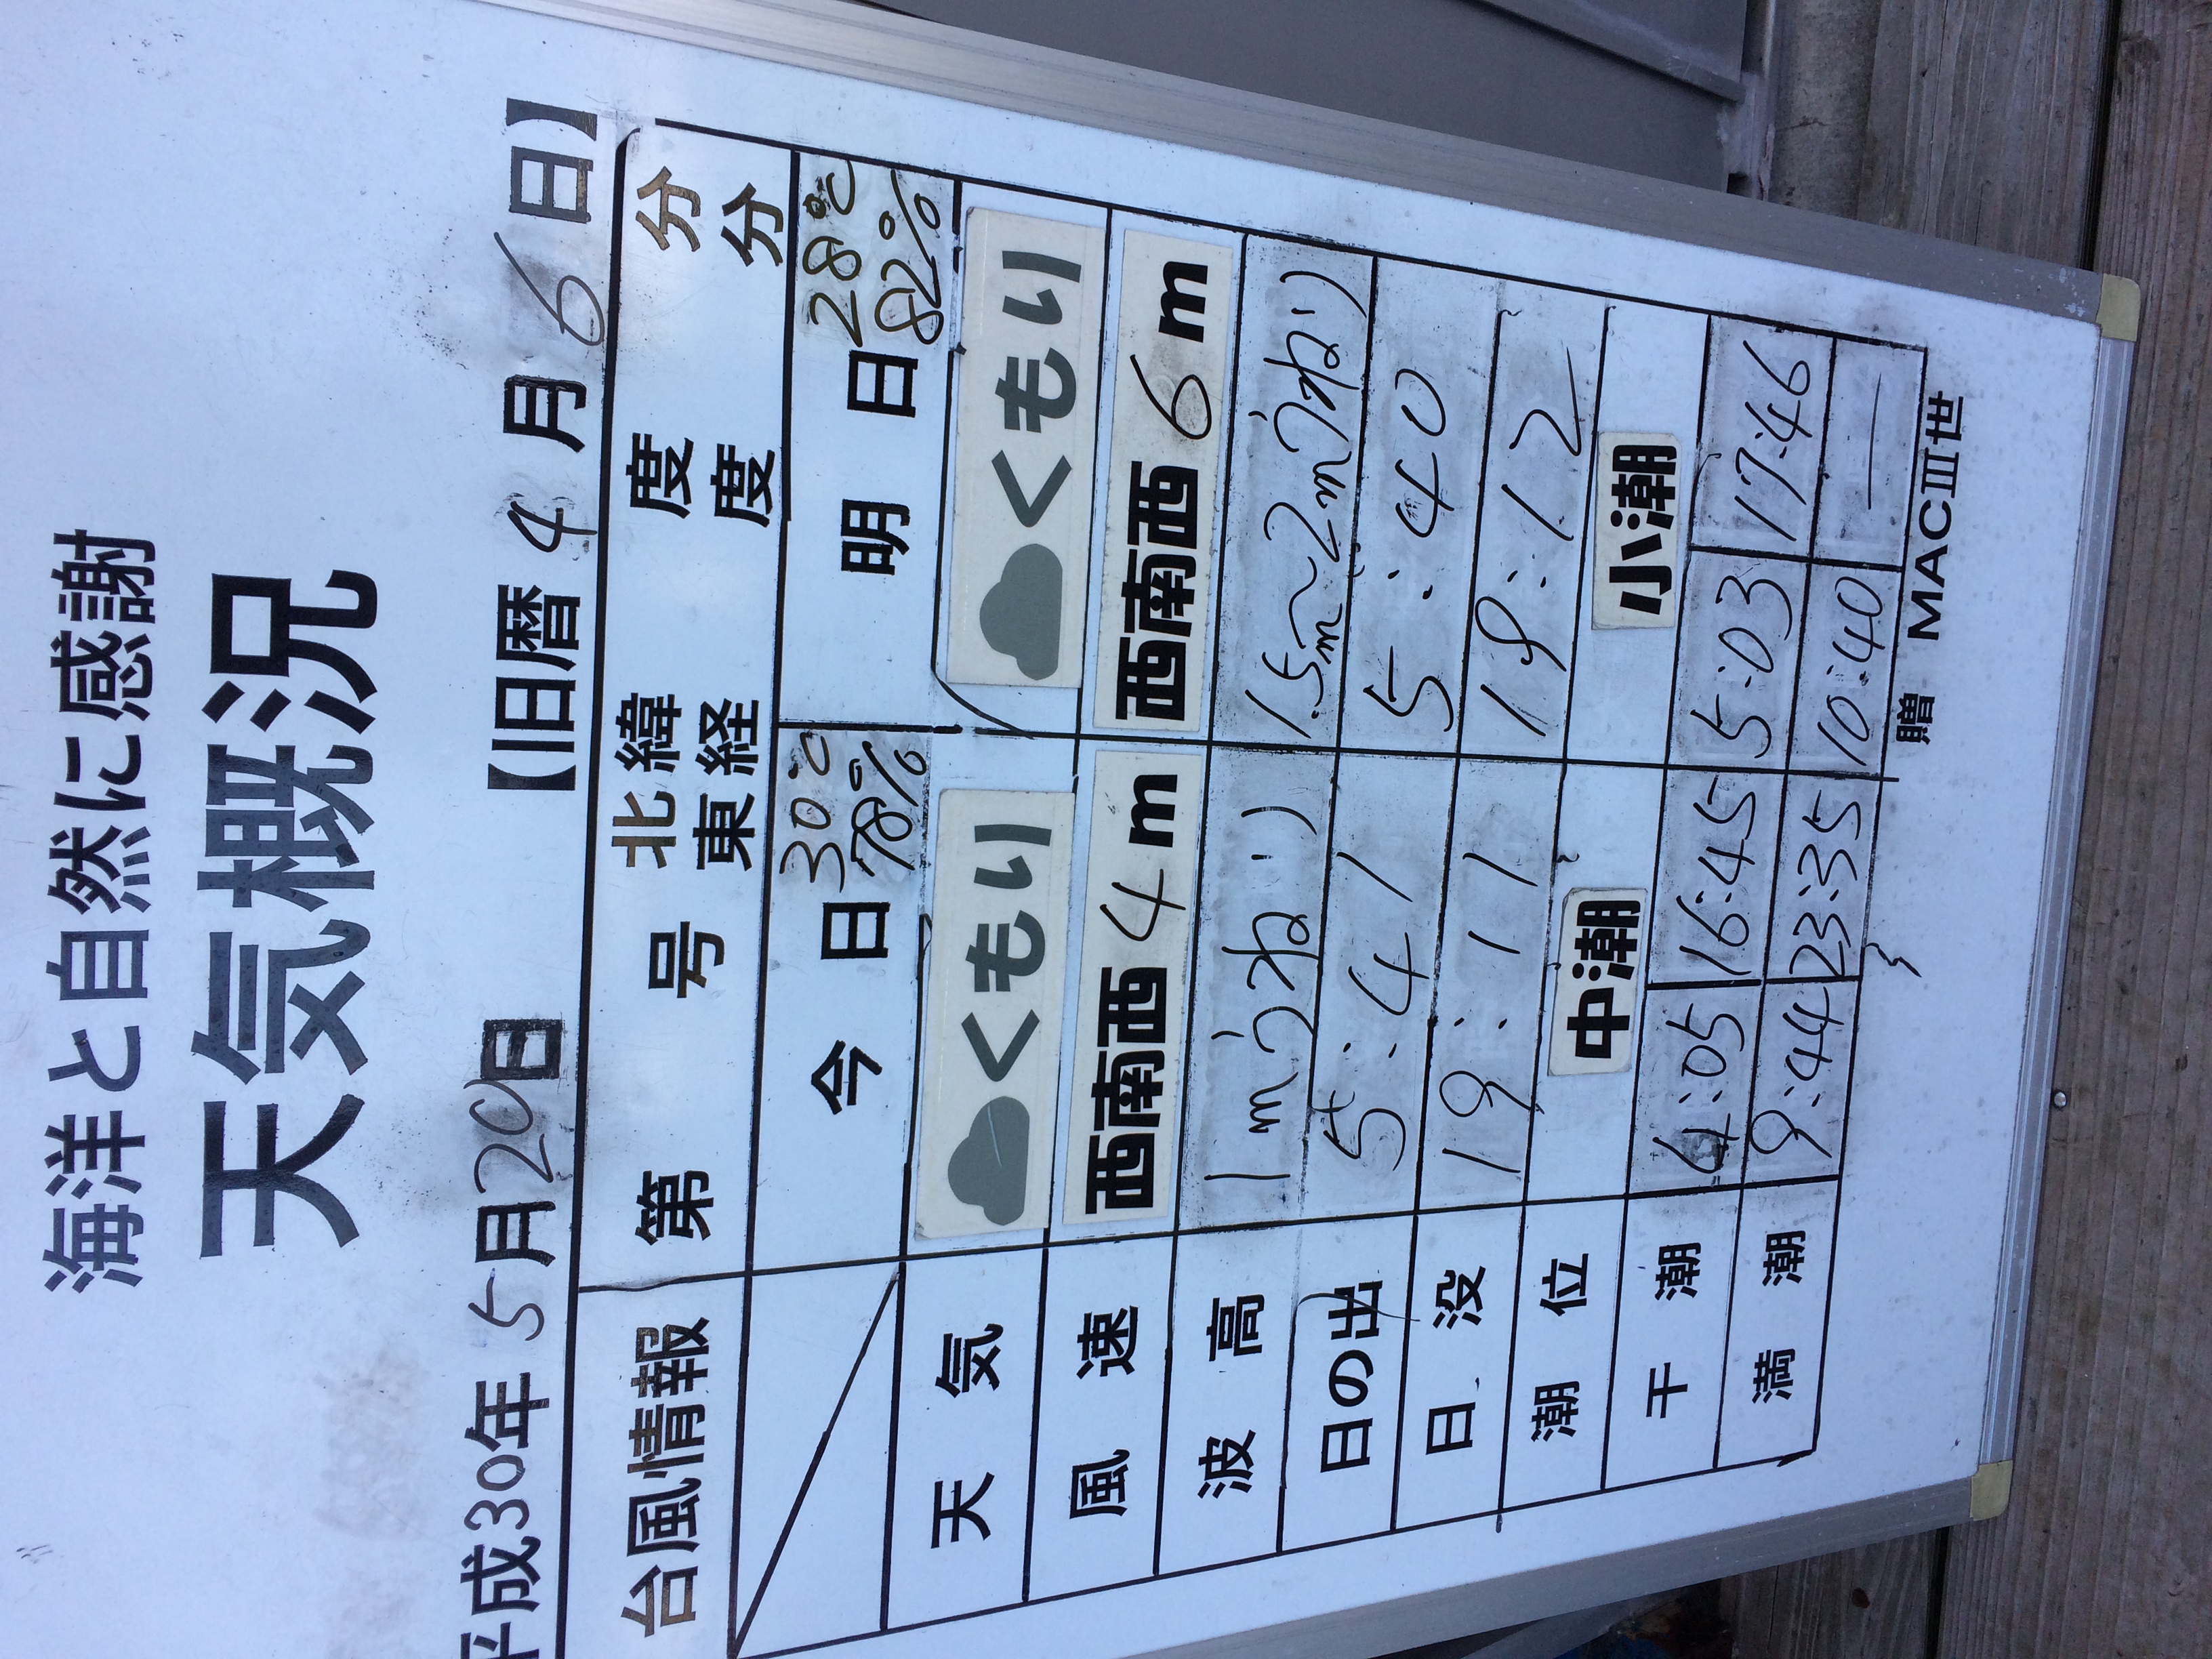 海洋と自然に感謝
天気概況
平成30年5月20日 【旧暦4月6日】
台風情報 第 号 北緯 度 分
東経 度 分
今日 30℃ 明日 28℃
78% 82%
天気 くもり くもり
風速 西南西4m 西南西6m
波高 1mうねり 1.5m〜2mうねり
日の出 5:41 5:40
日没 19:11 19:12
潮位 中潮 小潮
干潮 4:05 16:45 5:03 17:46
満潮 9:44 23:35 10:40 —
贈 MACⅢ世